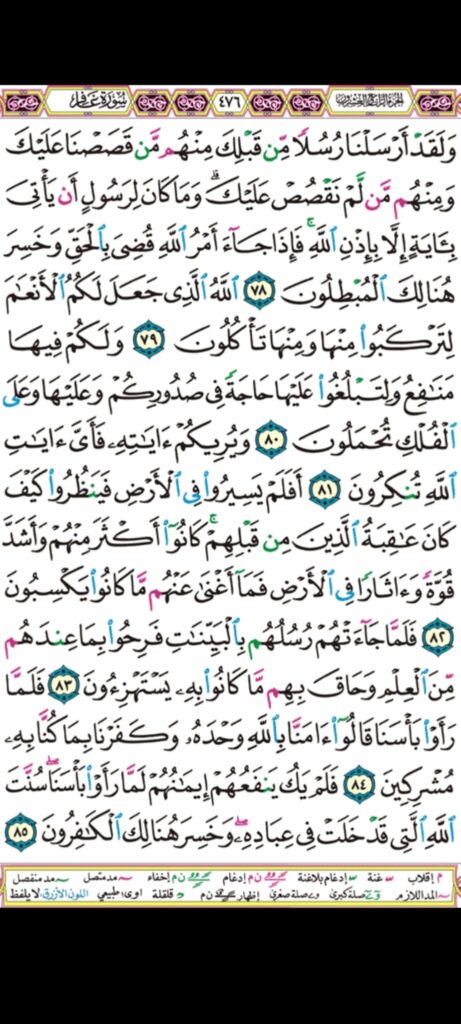 الجزء الرابع والعشرون ٤٧٦ سُورَةُ غَافِرٍ
وَلَقَدۡ أَرۡسَلۡنَا رُسُلٗا مِّن قَبۡلِكَ مِنۡهُم مَّن قَصَصۡنَا عَلَيۡكَ
وَمِنۡهُم مَّن لَّمۡ نَقۡصُصۡ عَلَيۡكَۗ وَمَا كَانَ لِرَسُولٍ أَن يَأۡتِيَ
بِـَٔايَةٍ إِلَّا بِإِذۡنِ ٱللَّهِۚ فَإِذَا جَآءَ أَمۡرُ ٱللَّهِ قُضِيَ بِٱلۡحَقِّ وَخَسِرَ
هُنَالِكَ ٱلۡمُبۡطِلُونَ ٧٨ ٱللَّهُ ٱلَّذِي جَعَلَ لَكُمُ ٱلۡأَنۡعَٰمَ
لِتَرۡكَبُواْ مِنۡهَا وَمِنۡهَا تَأۡكُلُونَ ٧٩ وَلَكُمۡ فِيهَا
مَنَٰفِعُ وَلِتَبۡلُغُواْ عَلَيۡهَا حَاجَةٗ فِي صُدُورِكُمۡ وَعَلَيۡهَا وَعَلَى
ٱلۡفُلۡكِ تُحۡمَلُونَ ٨٠ وَيُرِيكُمۡ ءَايَٰتِهِۦ فَأَيَّ ءَايَٰتِ
ٱللَّهِ تُنكِرُونَ ٨١ أَفَلَمۡ يَسِيرُواْ فِي ٱلۡأَرۡضِ فَيَنظُرُواْ كَيۡفَ
كَانَ عَٰقِبَةُ ٱلَّذِينَ مِن قَبۡلِهِمۡۚ كَانُوٓاْ أَكۡثَرَ مِنۡهُمۡ وَأَشَدَّ
قُوَّةٗ وَءَاثَارٗا فِي ٱلۡأَرۡضِ فَمَآ أَغۡنَىٰ عَنۡهُم مَّا كَانُواْ يَكۡسِبُونَ
٨٢ فَلَمَّا جَآءَتۡهُمۡ رُسُلُهُم بِٱلۡبَيِّنَٰتِ فَرِحُواْ بِمَا عِندَهُم
مِّنَ ٱلۡعِلۡمِ وَحَاقَ بِهِم مَّا كَانُواْ بِهِۦ يَسۡتَهۡزِءُونَ ٨٣ فَلَمَّا
رَأَوۡاْ بَأۡسَنَا قَالُوٓاْ ءَامَنَّا بِٱللَّهِ وَحۡدَهُۥ وَكَفَرۡنَا بِمَا كُنَّا بِهِۦ
مُشۡرِكِينَ ٨٤ فَلَمۡ يَكُ يَنفَعُهُمۡ إِيمَٰنُهُمۡ لَمَّا رَأَوۡاْ بَأۡسَنَاۖ سُنَّتَ
ٱللَّهِ ٱلَّتِي قَدۡ خَلَتۡ فِي عِبَادِهِۦۖ وَخَسِرَ هُنَالِكَ ٱلۡكَٰفِرُونَ ٨٥
م إقلاب غنة إدغام بلاغنة ن م إدغام ن م إخفاء مد متصل مد منفصل
المد اللازم صلة كبرى صلة صغرى إظهار ن م قلقلة اوى: طبيعي اللون الأزرق: لا يلفظ